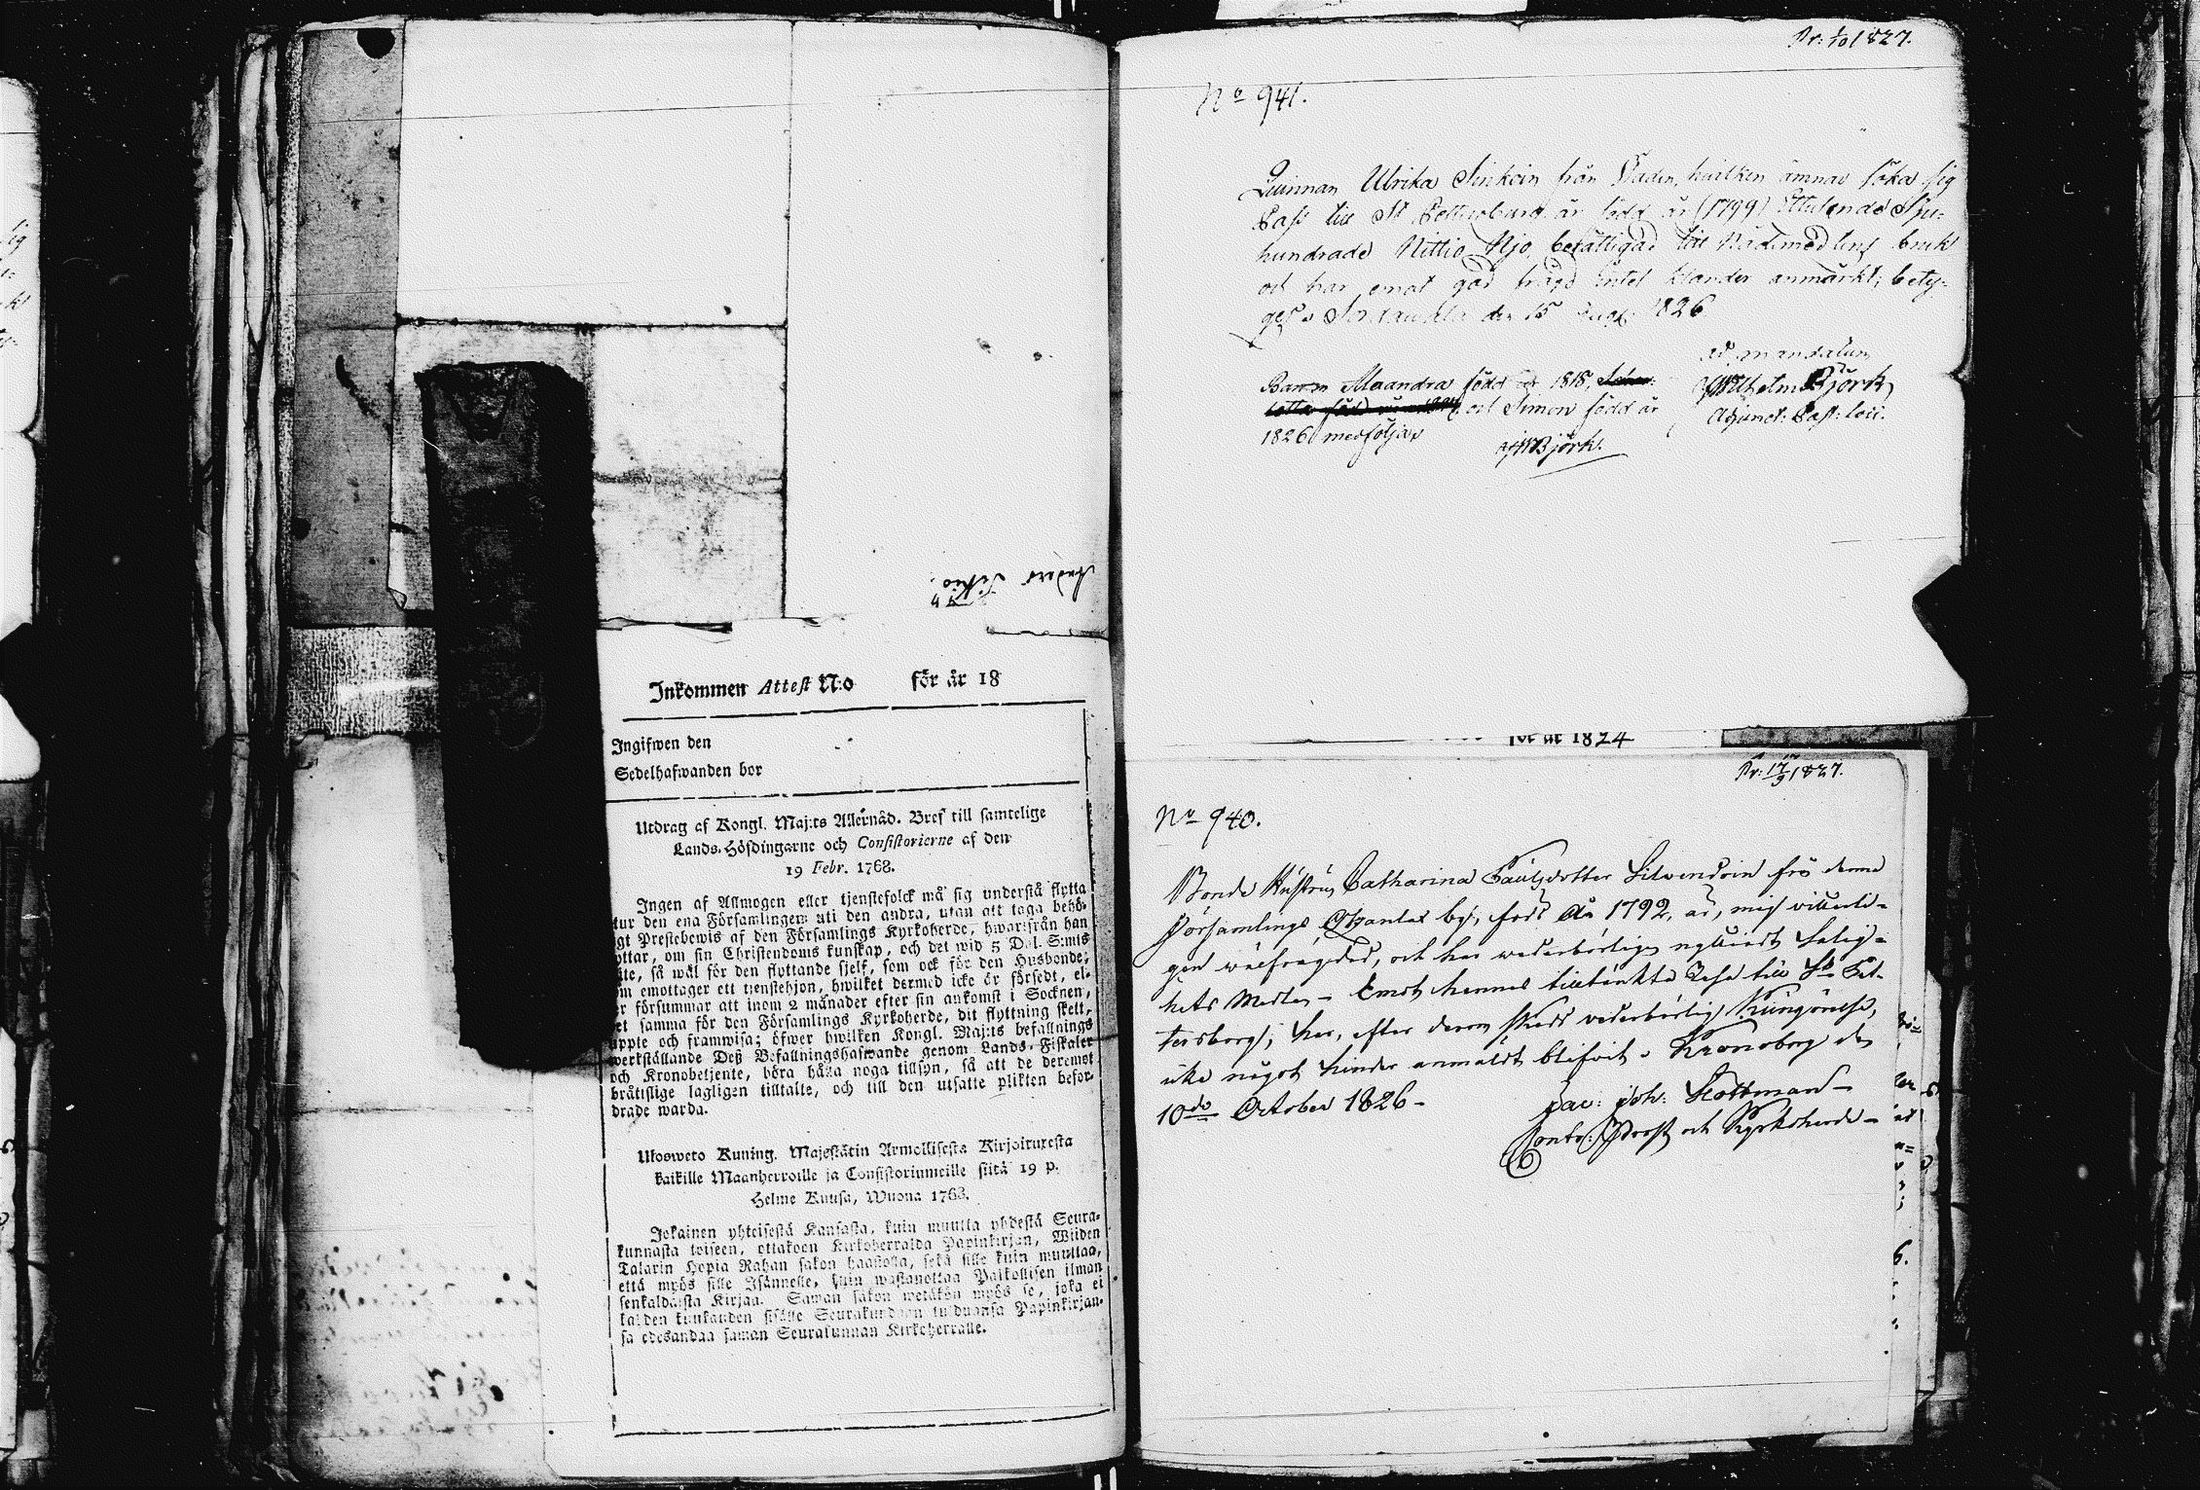 Anders Sikiö.
Inkommen Attest N:o för år 18
Ingifwen den
Sedelhafwanden bor
Utdrag af Kongl. Maj:ts Allernåd. Bref till samtelige
Lands-Höfdingarne och Consistorierne af den
19 Febr. 1768.
Ingen af Allmogen eller tjenstefolck må sig understå flytta
utur den ena Församlingen uti den andra, utan att taga behö-
gt Prestebewis af den Församlings Kyrkoherde, hwarifrån han
yttar, om sin Christendoms kunskap, och det wid 5 Dal. S:mts
ite, så wäl för den flyttande sjelf, som ock för den Husbonde,
om emottager ett tjenstehjon, hwilket dermed icke är försedt, el-
r försummar att inom 2 månader efter sin ankomst i Socknen,
et samma för den Församlings Kyrkoherde, dit flyttning skett,
uppte och framwisa; öfwer hwilken Kongl. Maj:ts befallnings
werkställande Deß Befallningshafwande genom Lands-Fiskaler
och Kronobetjente, böra hålla noga tillsyn, så att de deremot
bråtislige lagligen tilltalte, och till den utsatte plikten befor-
drade warda.
Ulosweto Kuning. Majestätin Armollisesta Kirjoituxesta
kaikille Maanherroille ja Consistoriumeille siitä 19 p.
Helme Kuusa, Wuona 1768.
Jokainen yhteisestä Kansasta, kuin muutta yhdestä Seura-
kunnasta toiseen, ottakoon Kirkoherralda Papinkirjan, Wiiden
Talarin Hopia Rahan sakon haastolla, sekä sille kuin muuttaa,
että myös sille Isännelle, kuin wastanottaa Paikollisen ilman
senkaldaista Kirjaa. Saman sakon wetäkön myös se, joka ei
kahden kuukauden sisälle Seurakundaan tulduansa Papinkirjan-
sa edesandaa saman Seurakunnan Kirkoherralle.
Pr: 1/10 1827.
No 941.
Quinnan Ulrika Sinkoin från Staden, hvilken ämnar söka sig
Pass till St Pettersburg är född år (1799) Ettusende Sju-
hundrade Nittio Njo, befälligad till Nådemedlens bruk
och har emot god frägd intet klander anmärkt; bety-
ges. Sordawala den 15 1826
Barnen Alexandra född år 1818,
och Simon född år
1826 medföljer
WBjörk.
ad mandatum
Wilhelm Björk
Adjunct: Past: loci.
för år 1824
Pr: 17/9 1827.
No 940.
Bonde Hustrun Catharina Paulsdotter Silvendoin frå denne
Församlings by, född Ao 1792, är, mig
gen välfrägdad, och har vederbörligen nyttiadt Salig-
hets Medlen – Emot hennes tilltänkta Resa till St Pet-
tersborg; har, efter derom skedd vederbörlig Kungörelse,
icke något hinder anmäldt blifvit. Kronoborg den
10de October 1826 –
Jac: Joh: Hoffman –
Contr: Prost och Kyrkoherde –